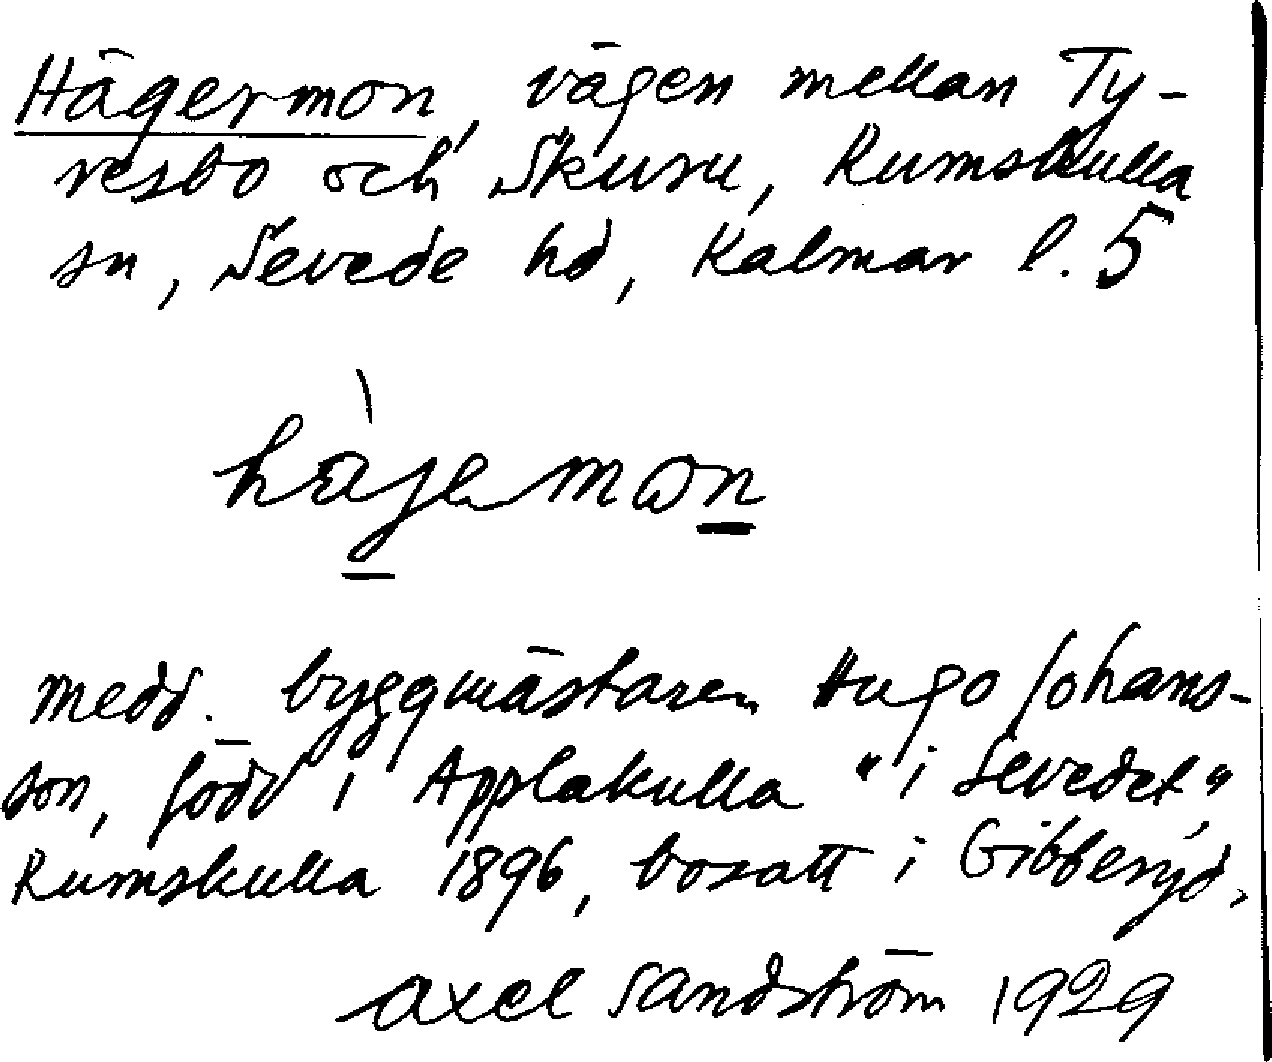 Hägermon, vägen mellan Ty-
resbo och Skuru, Rumskulla
sn, Sevede hd, Kalmar l. 5
hàjemon
medd. byggmästaren Hugo Johans-
son, född i Applakulla "i Sevedet",
Rumskulla 1896, bosatt i Gibberyd.
Axel Sandström 1929